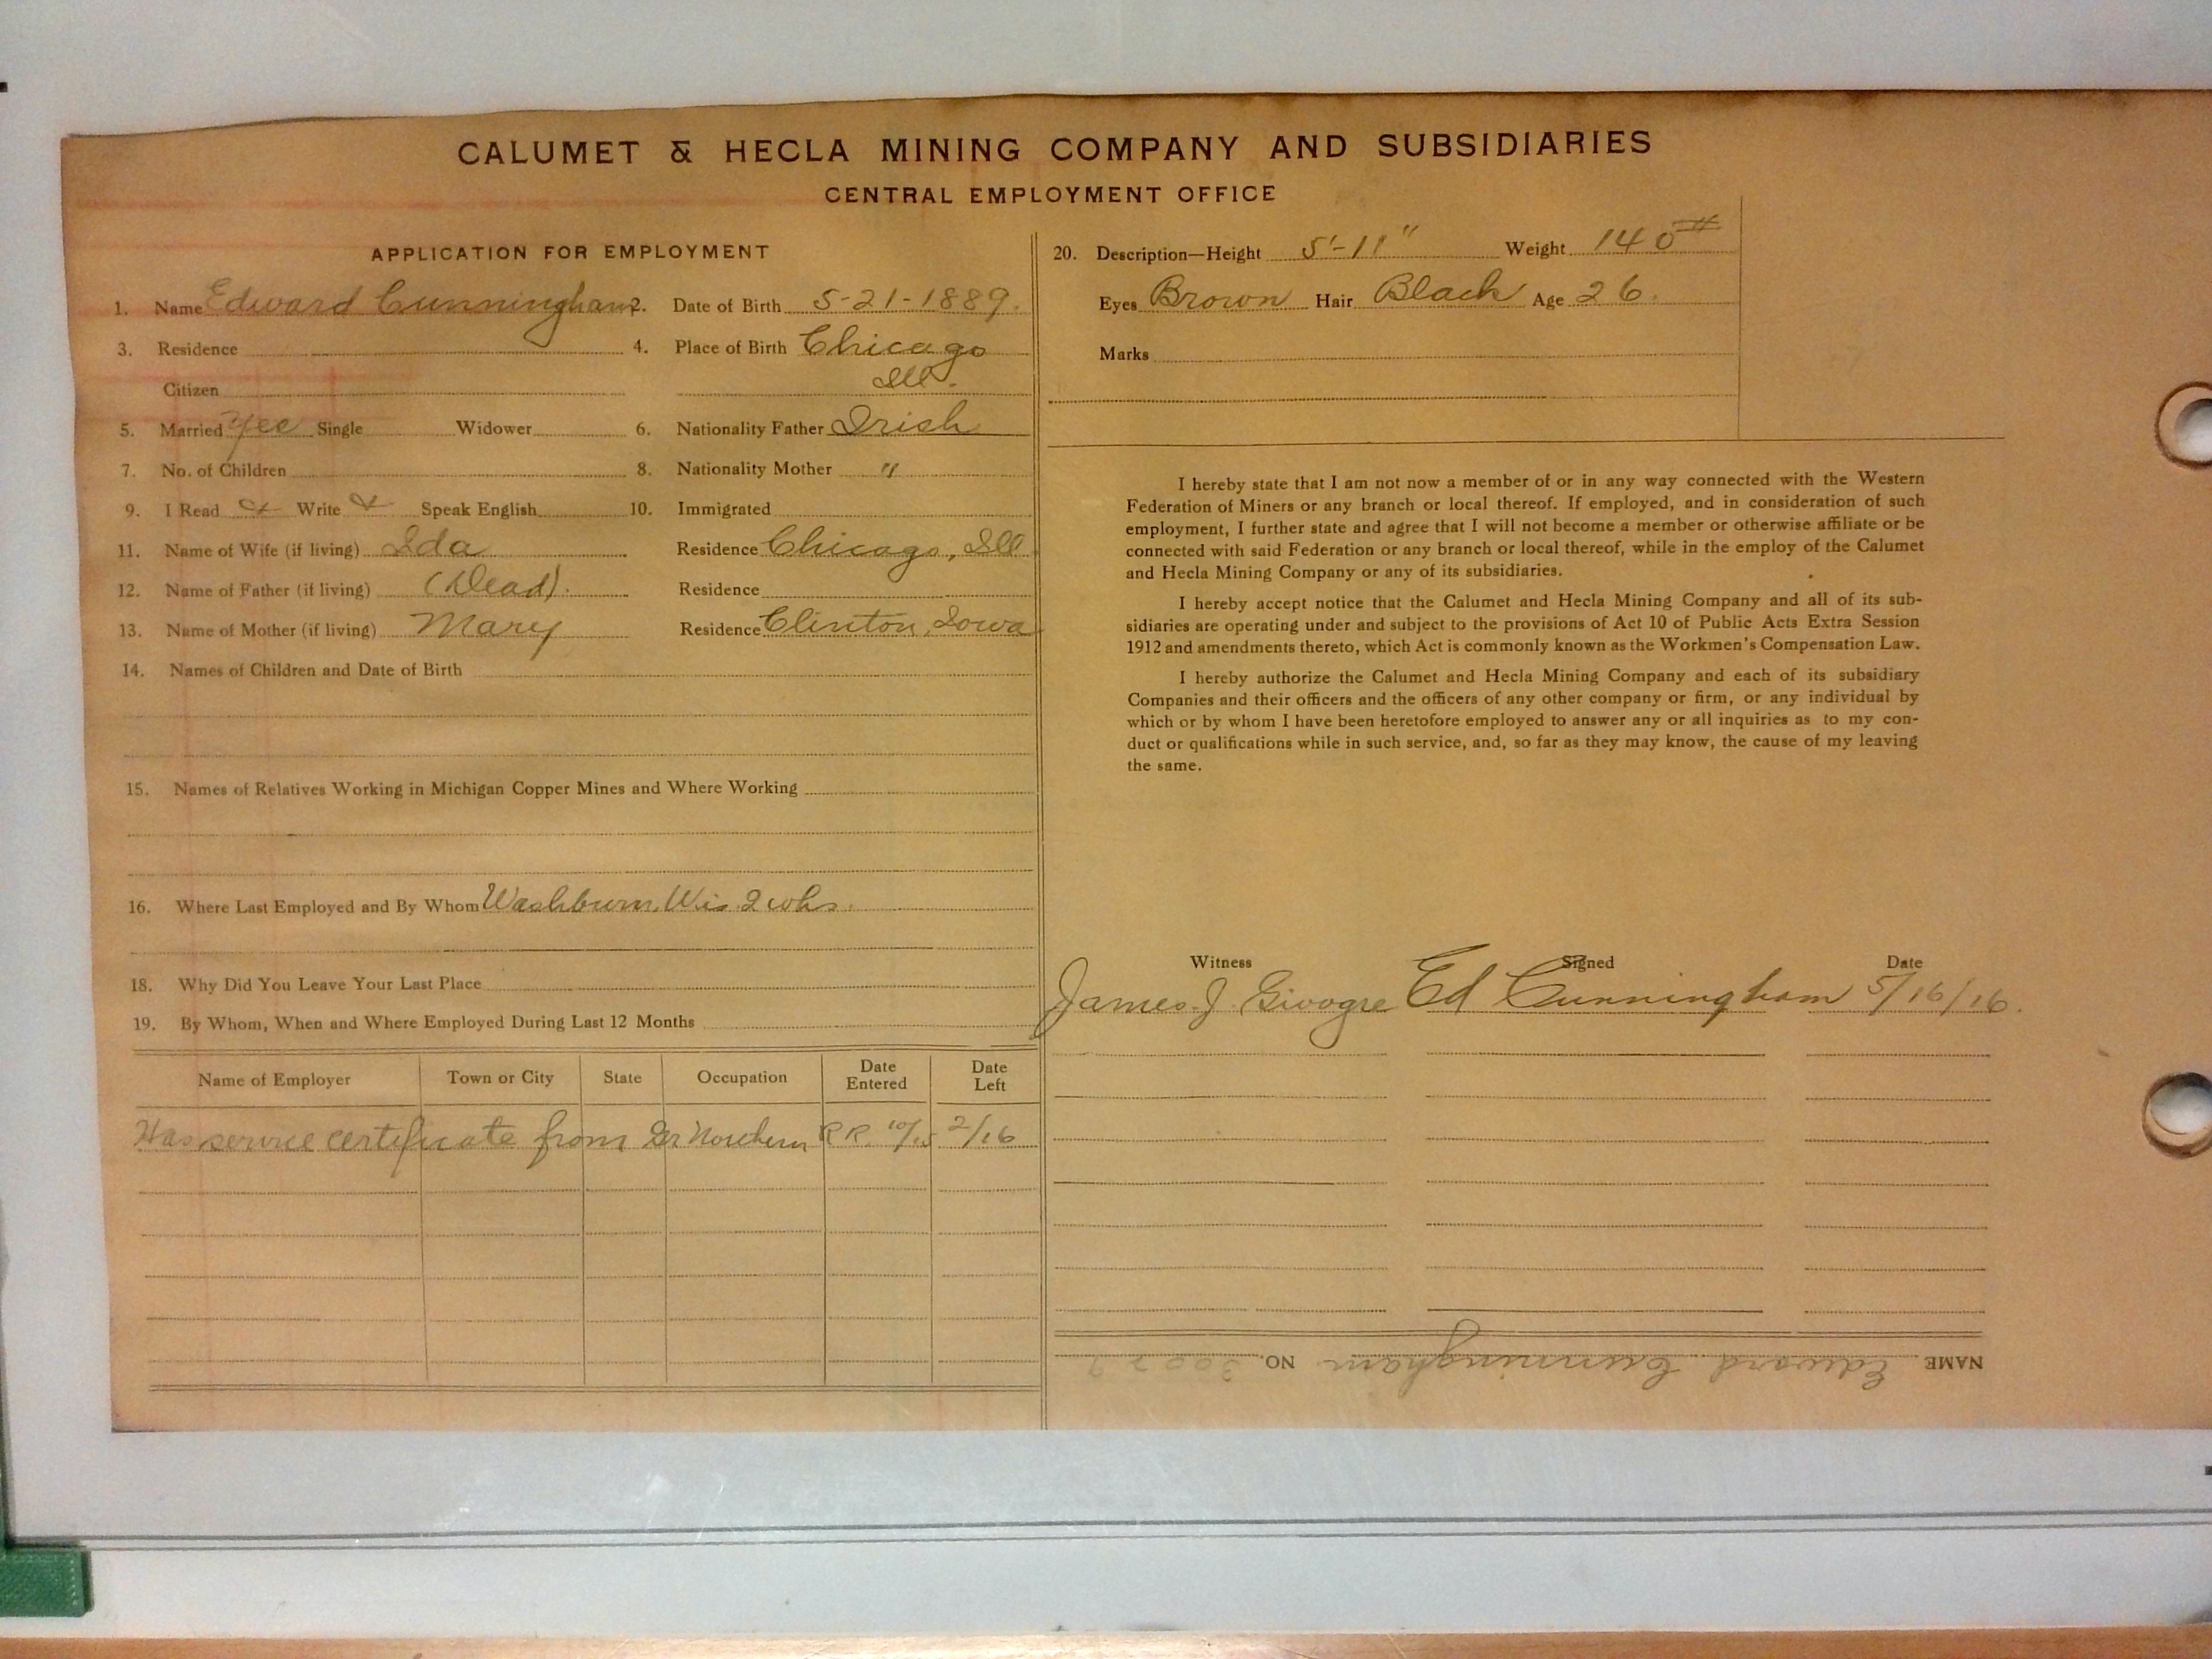 CALUMET & HECLA MINING COMPANY AND SUBSIDIARIES
CENTRAL EMPLOYMENT OFFICE
APPLICATION FOR EMPLOYMENT
1. Name Edward Cunningham 2. Date of Birth 5-21-1889.
3. Residence 4. Place of Birth Chicago
Citizen Ill.
5. Married Yes Single Widower 6. Nationality Father Irish
7. No. of Children 8. Nationality Mother "
9. I Read & Write & Speak English 10. Immigrated
11. Name of Wife (if living) Ida Residence Chicago, Ill
12. Name of Father (if living) (Dead). Residence
13. Name of Mother (if living) Mary Residence Clinton, Iowa
14. Names of Children and Date of Birth
15. Names of Relatives Working in Michigan Copper Mines and Where Working
16. Where Last Employed and By Whom Washburn, Wis. 2 wks.
18. Why Did You Leave Your Last Place
19. By Whom, When and Where Employed During Last 12 Months
Name of Employer Town or City State Occupation Date Entered Date Left
Has service certificate from Gr Northern R R. 10/15 2/16
20. Description—Height 5'-11" Weight 140#
Eyes Brown Hair Black Age 26.
Marks
I hereby state that I am not now a member of or in any way connected with the Western
Federation of Miners or any branch or local thereof. If employed, and in consideration of such
employment, I further state and agree that I will not become a member or otherwise affiliate or be
connected with said Federation or any branch or local thereof, while in the employ of the Calumet
and Hecla Mining Company or any of its subsidiaries.
I hereby accept notice that the Calumet and Hecla Mining Company and all of its sub-
sidiaries are operating under and subject to the provisions of Act 10 of Public Acts Extra Session
1912 and amendments thereto, which Act is commonly known as the Workmen's Compensation Law.
I hereby authorize the Calumet and Hecla Mining Company and each of its subsidiary
Companies and their officers and the officers of any other company or firm, or any individual by
which or by whom I have been heretofore employed to answer any or all inquiries as to my con-
duct or qualifications while in such service, and, so far as they may know, the cause of my leaving
the same.
Witness Signed Date
James J. Ed Cunningham 5/16/16.
NAME Edward Cunningham NO.